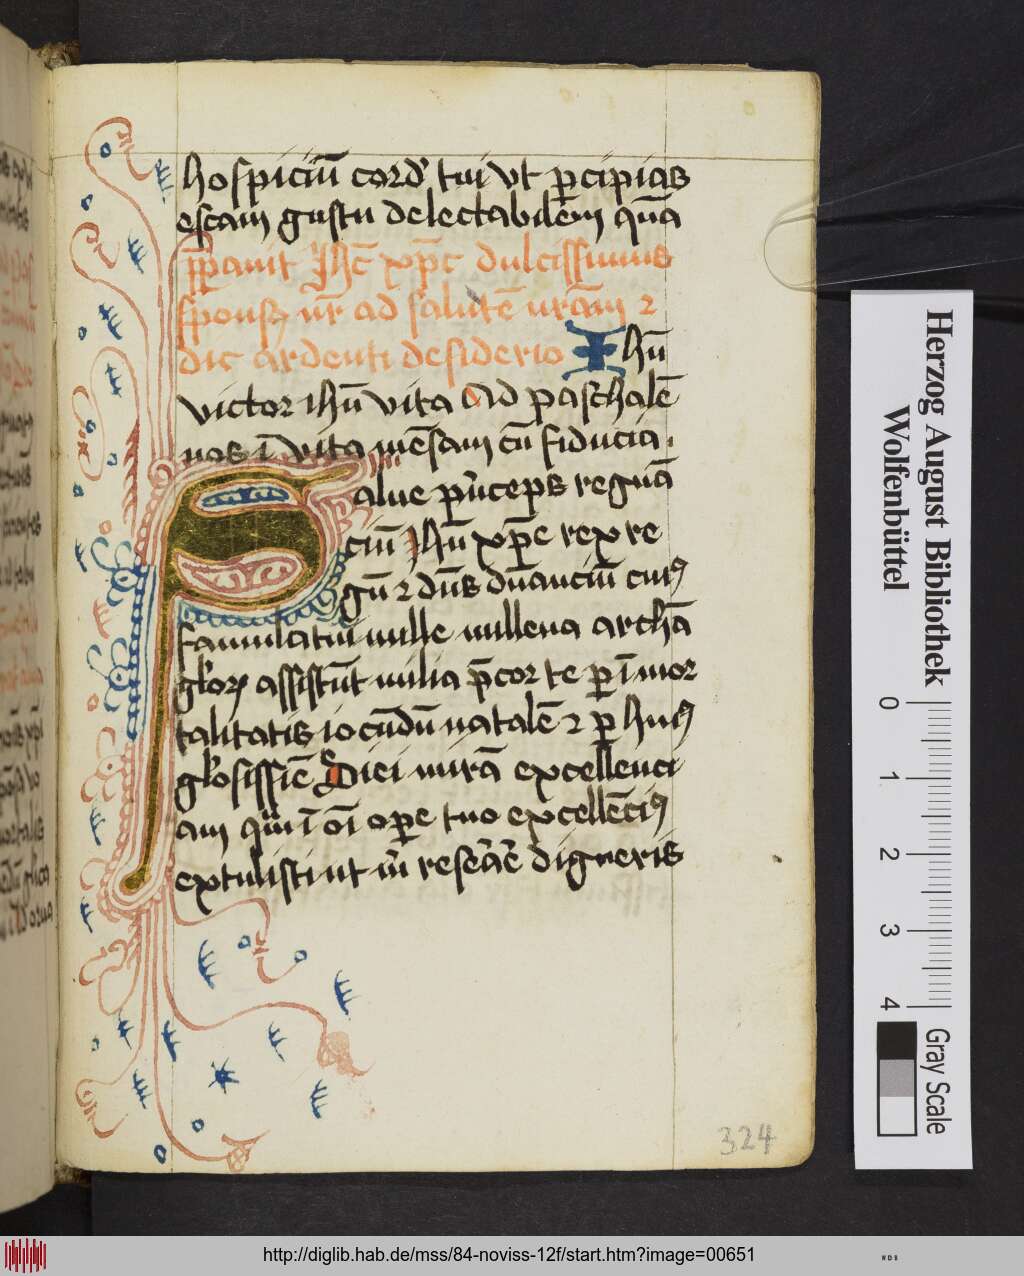 hospiciū cord' tui vt ꝑcipias
escam gustu delectabilem quā
p̄ꝑauit ihc̄ xp̄c dulcissimus
sponsꝫ nr̄ ad salutē nrām ⁊
dic ardenti desiderio Ihū
victor ihū vita Ad paschalē
nos ī vita mēsam cū fiducia.
alue pͥnceps regnā
ciū Ihū xp̄e rex re
gū ⁊ dn̄s dn̄anciū cui⁹
famulatui mille millena archā
gloꝝ assistūt milia p̄cor te ꝑ īmor
talitatis iocūdū natalē ⁊ ꝑ hui⁹
glosissīe Diei mirā excellenci
am qm̄ ī oī oꝑe tuo excellēci⁹
extulisti ut m̄ reserāe digneris
324
Herzog August Bibliothek
Wolfenbüttel
0 1 2 3 4
Gray Scale
http://diglib.hab.de/mss/84-noviss-12f/start.htm?image=00651